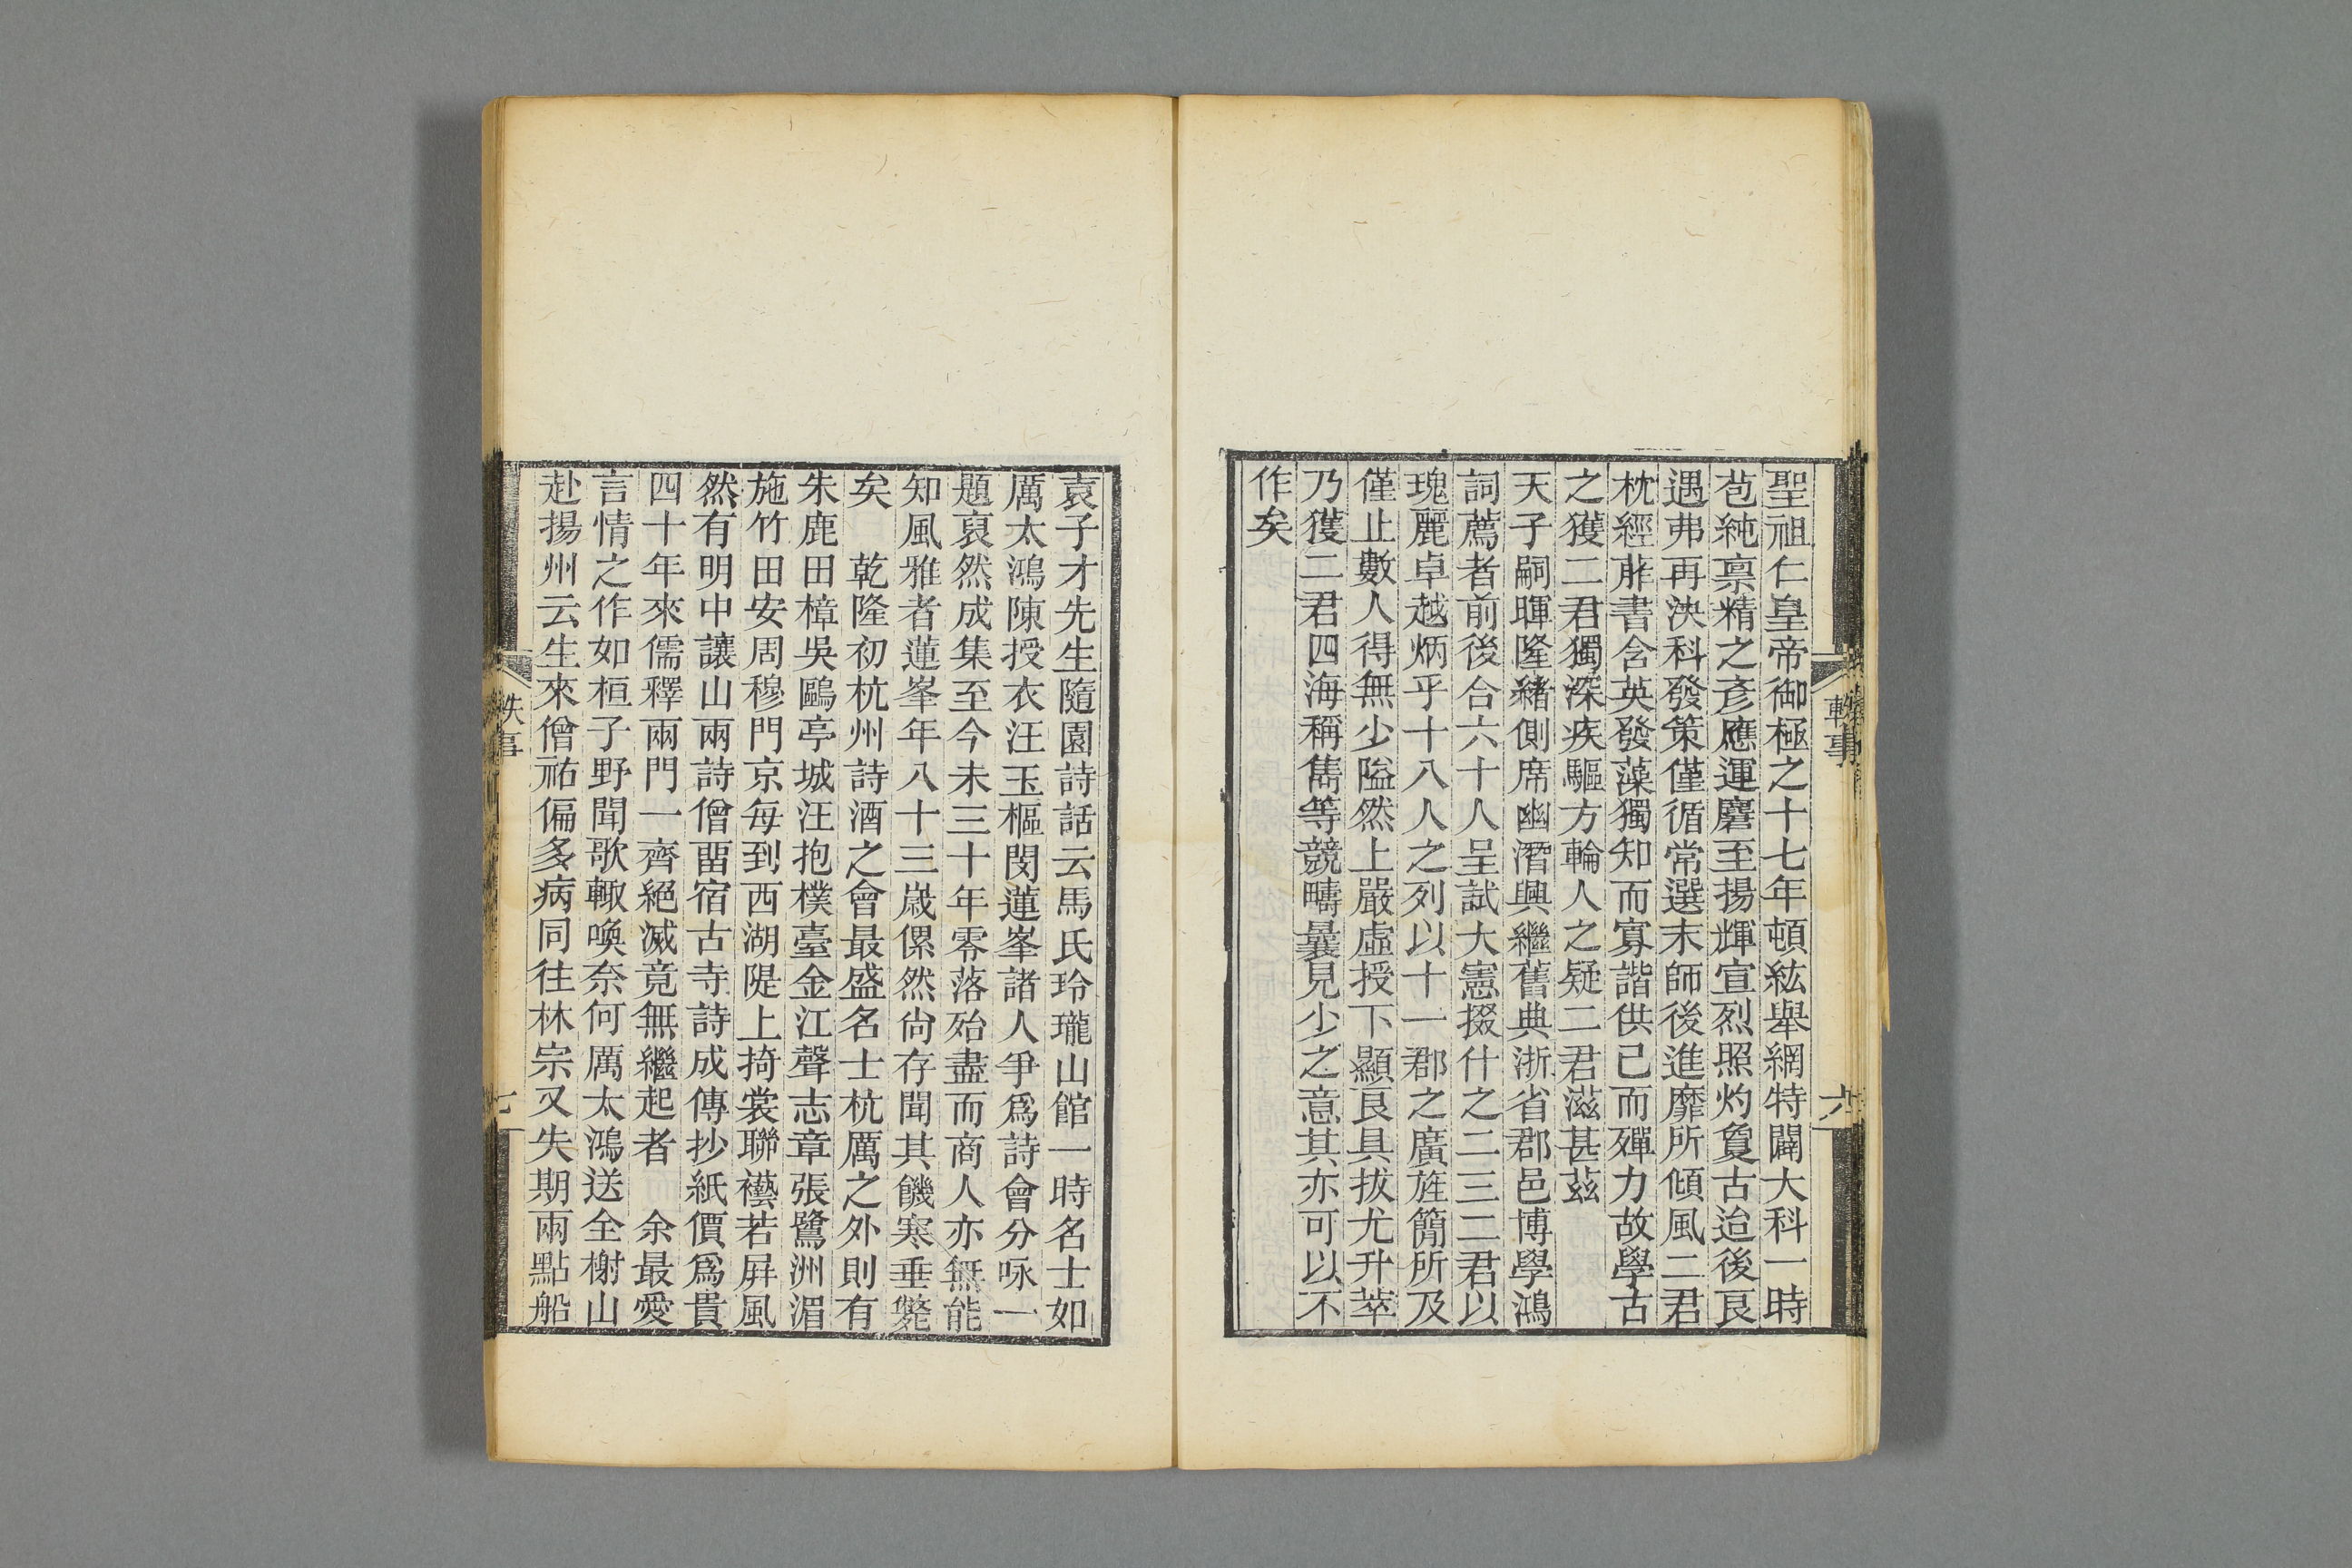 聖祖仁皇帝御極之十七年頓紘舉網特闢大科一時
苞純禀精之彥應運麏至揚輝宣烈照灼敻古迨後艮
遇弗再泱科發策僅循常選末師後進靡所傾風二君
枕經葄書含英發藻獨知而寡諧供己而殫力故學古
之獲二君獨深疾驅方輪人之疑二君滋甚茲
天子嗣暉隆緒側席幽潛興繼舊典浙省郡邑博學鴻
詞薦者前後合六十人呈試大憲掇什之二三二君以
瑰麗卓越炳乎十八人之列以十一郡之廣旌簡所及
僅止數人得無少隘然上嚴虛授下顯艮具拔尤升萃
乃獲二君四海稱雋等競疇曩見少之意其亦可以不
作矣
軼事
六
袁子才先生隨園詩話云馬氏玲瓏山館一時名士如
厲太鴻陳授衣汪玉樞閔蓮峯諸人爭爲詩會分咏一
題裒然成集至今未三十年零落殆盡而商人亦無能
知風雅者蓮峯年八十三嵗傫然尙存聞其饑寒垂斃
矣　乾隆初杭州詩酒之會最盛名士杭厲之外則有
朱鹿田樟吳鷗亭城汪抱樸臺金江聲志章張鷺洲湄
施竹田安周穆門京每到西湖隄上掎裳聯襼若屛風
然有明中讓山兩詩僧畱宿古寺詩成傳抄紙價爲貴
四十年來儒釋兩門一齊絕滅竟無繼起者　余最愛
言情之作如桓子野聞歌輙喚奈何厲太鴻送全榭山
赴揚州云生來僧祐偏多病同往林宗又失期兩點船
軼事
七